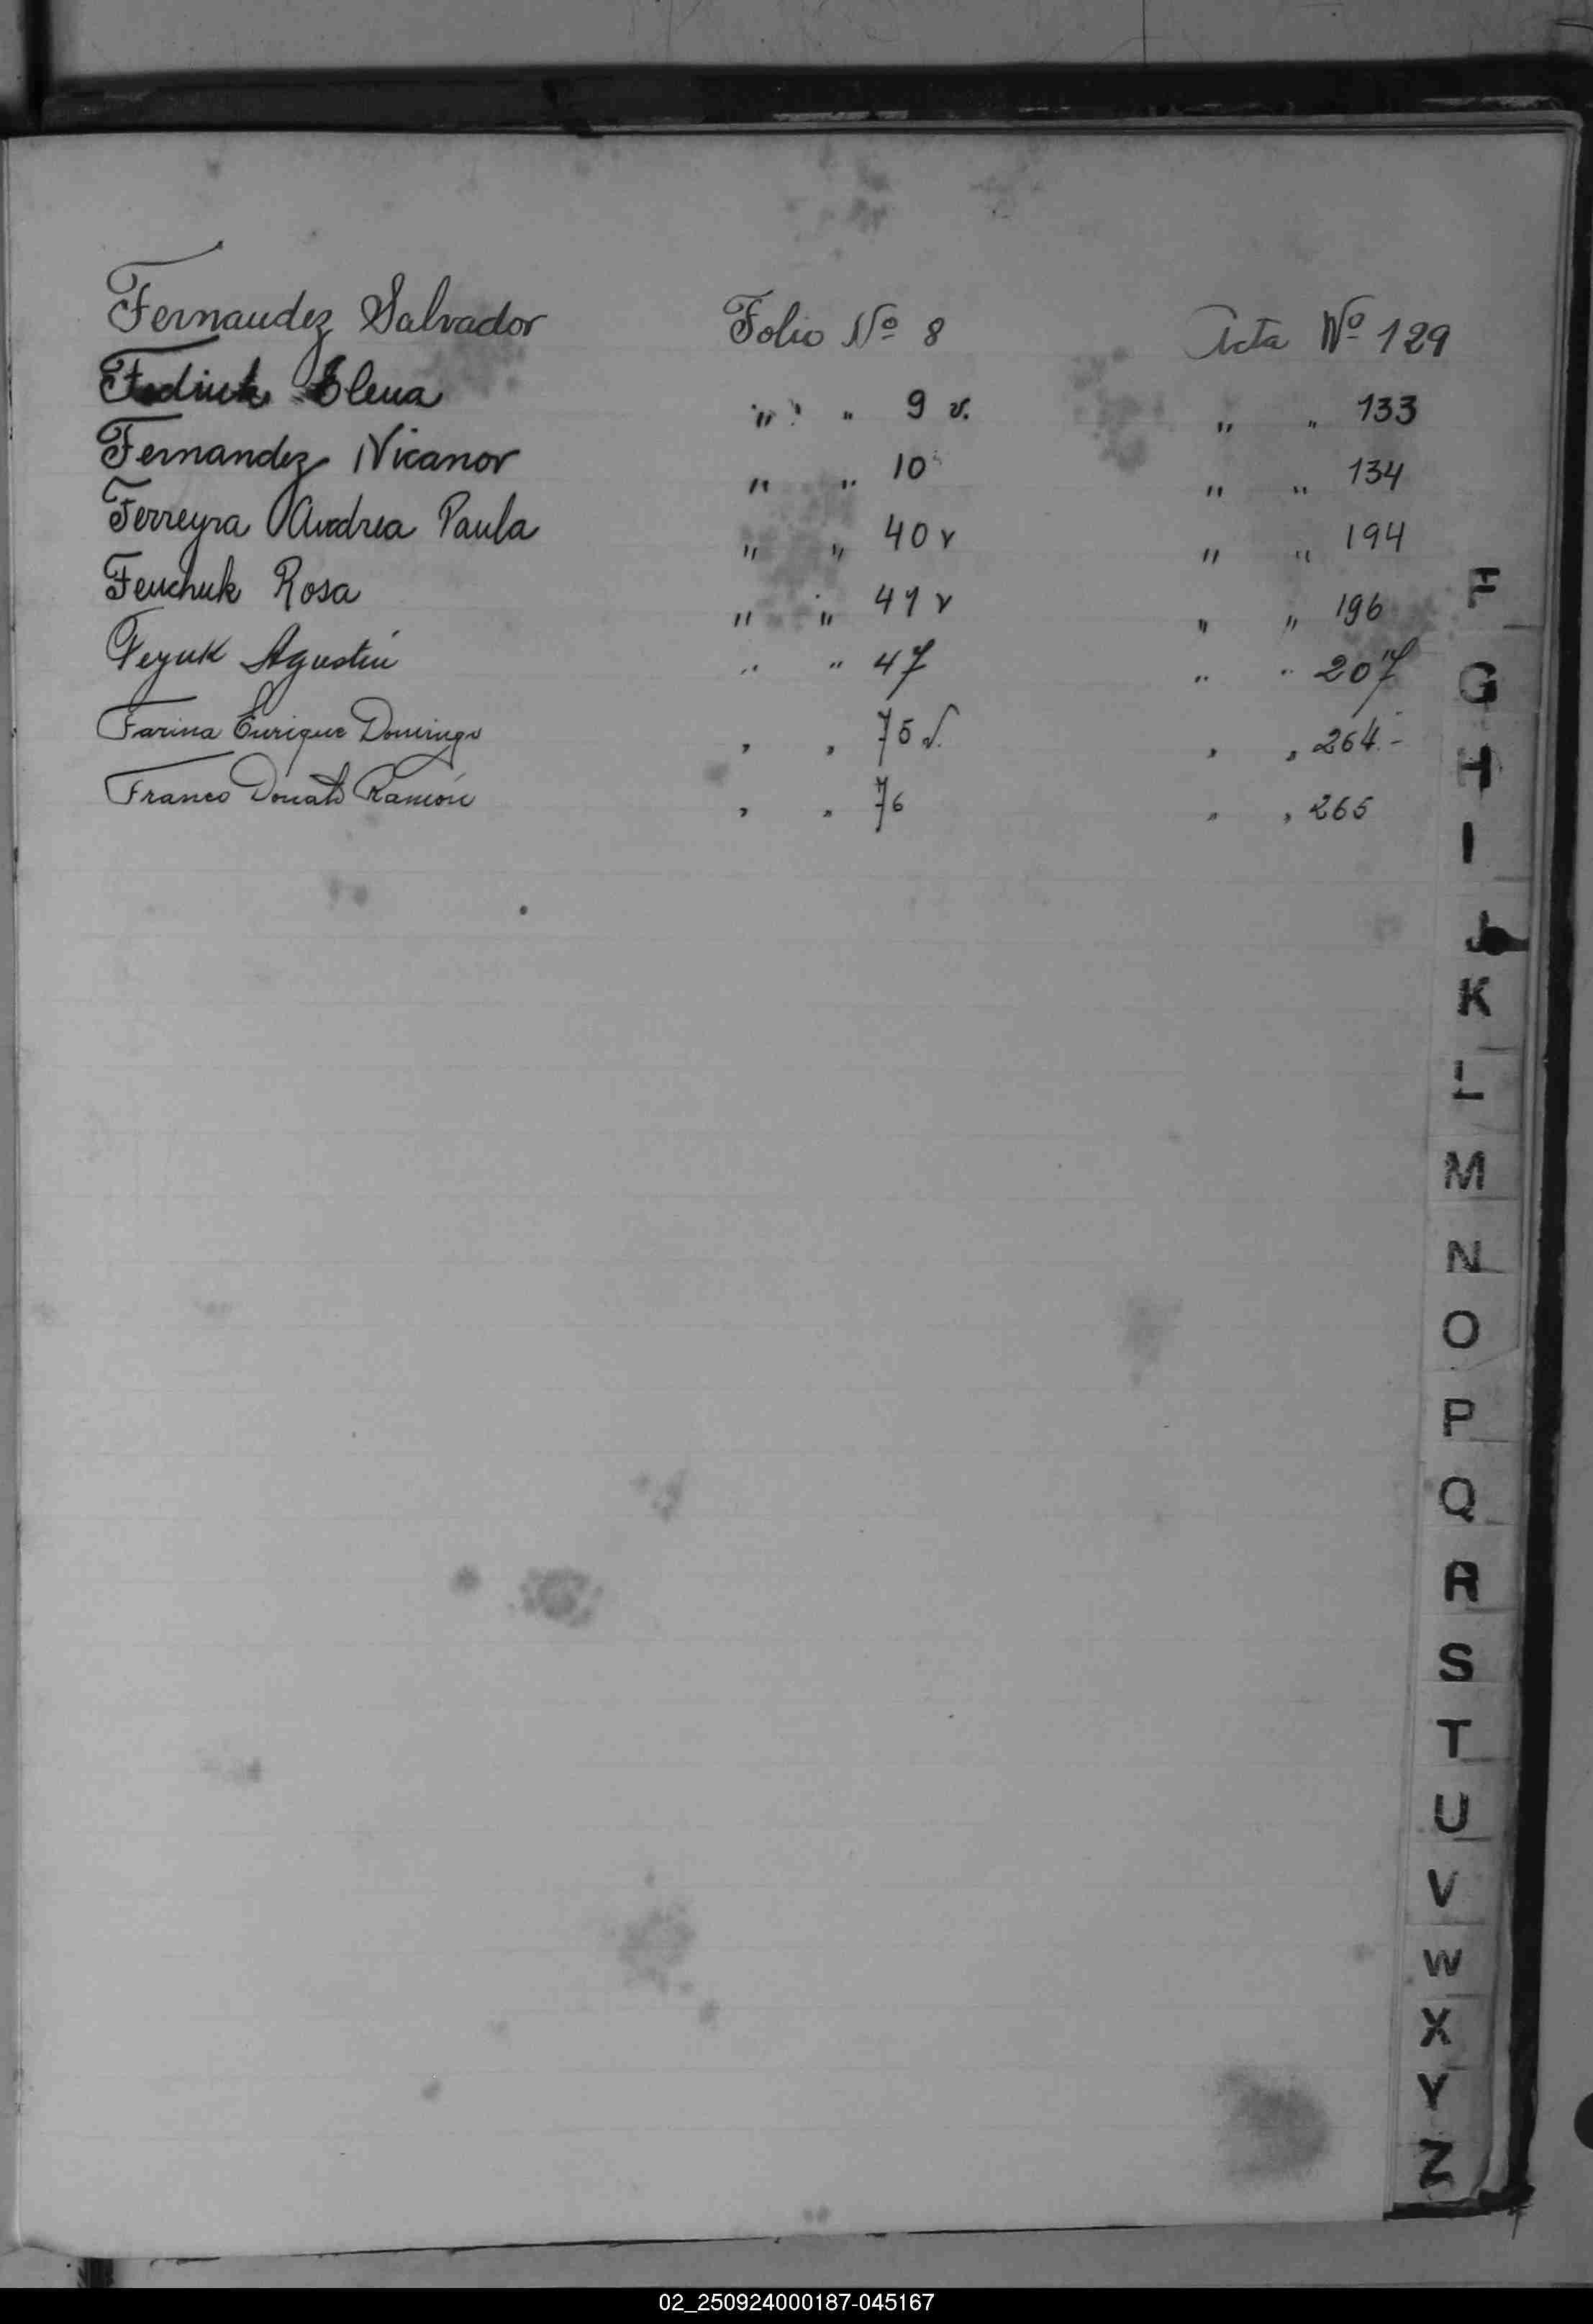 Fernandez Salvador Folio Nº 8 Acta Nº 129
Fediuk Elena " " 9 v. " " 133
Fernandez Nicanor " " 10 " " 134
Ferreyra Andrea Paula " " 40 v " " 194
Feuchuk Rosa " " 41 v " " 196
Feyuk Agustín " " 47 " " 207
Farina Enrique Domingo " " 75 v. " " 264.-
Franco Donato Ramón " " 76 " " 265
F
G
H
I
J
K
L
M
N
O
P
Q
R
S
T
U
V
W
X
Y
Z
02_250924000187-045167